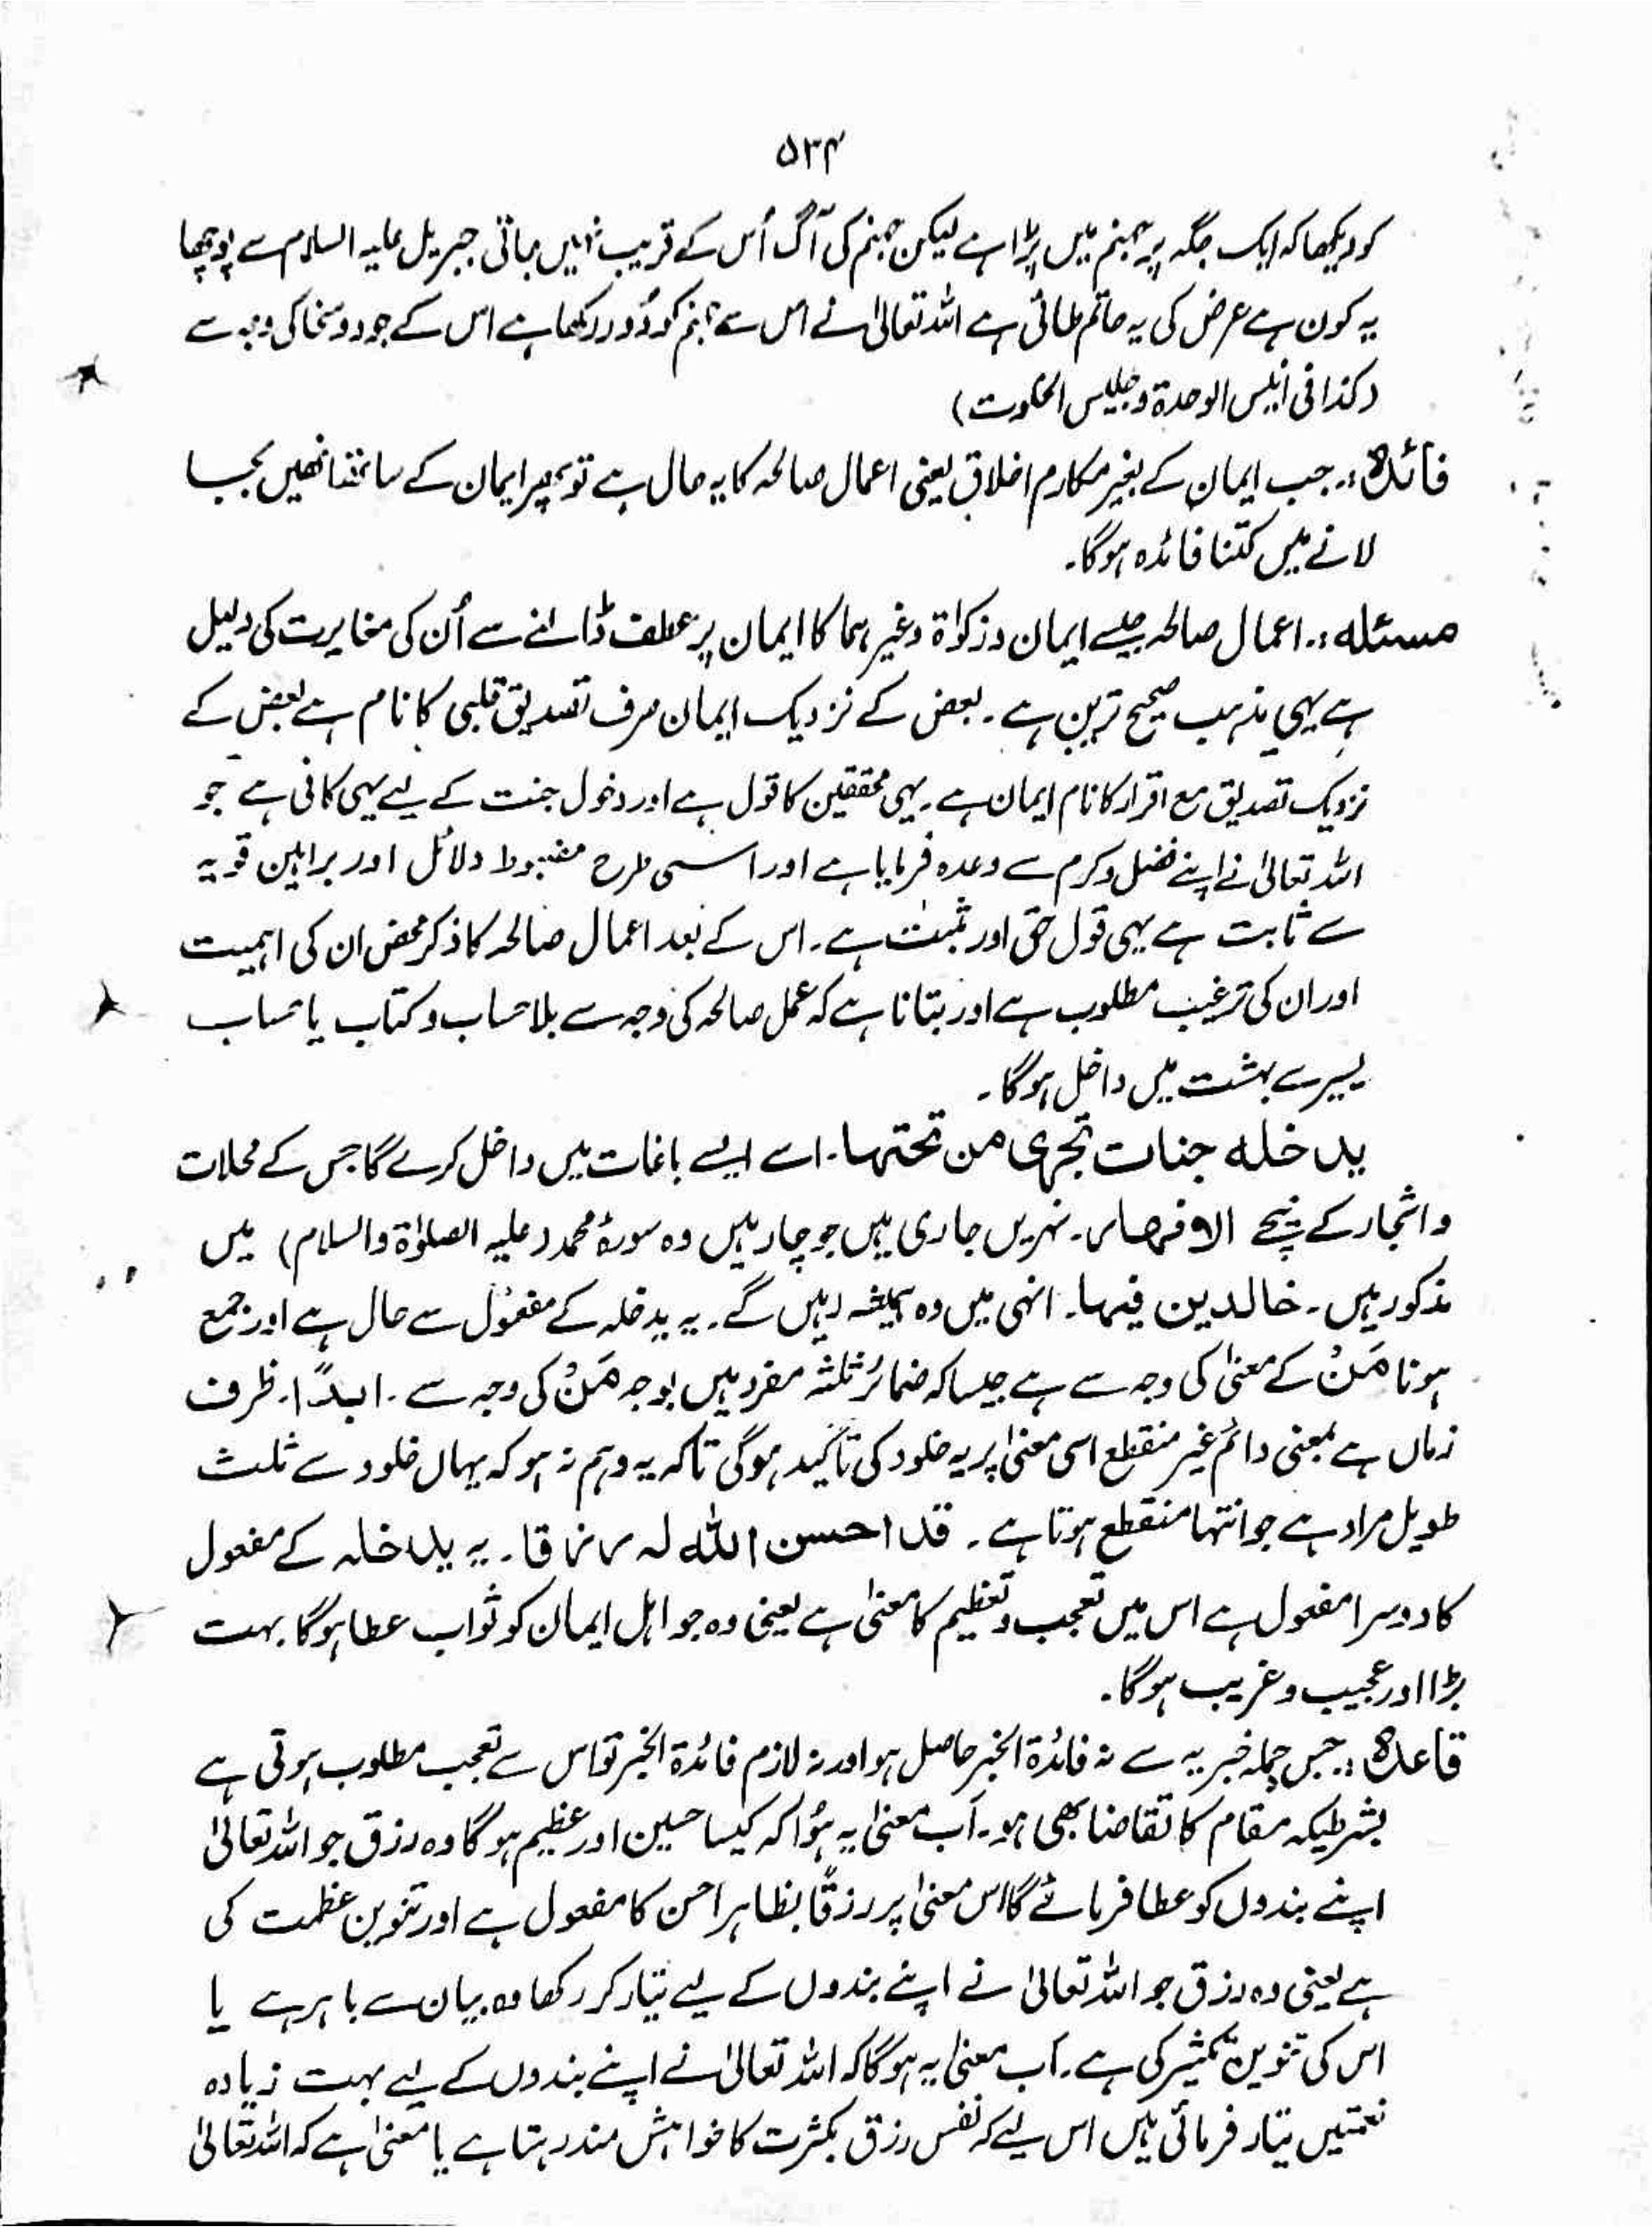 ۵۳۴
کو دیکھا کہ ایک جگہ پر جہنم میں پڑا ہے لیکن جہنم کی آگ اُس کے قریب نہیں جاتی جبریل علیہ السلام سے پوچھا
یہ کون ہے عرض کی یہ حاتم طائی ہے اللہ تعالیٰ نے اس سے جہنم کو دُور رکھا ہے اس کے جود و سخا کی وجہ سے
(کذا فی انیس الوحدۃ وجلیس الخلوت)
فائدہ:۔ جب ایمان کے بغیر مکارم اخلاق یعنی اعمال صالحہ کا یہ حال ہے تو پھر ایمان کے ساتھ انھیں بجا
لانے میں کتنا فائدہ ہوگا۔
مسئلہ:۔ اعمال صالحہ جیسے ایمان و زکوٰۃ وغیرہما کا ایمان پر عطف ڈالنے سے اُن کی مغایرت کی دلیل
ہے یہی مذہب صحیح ترین ہے۔ بعض کے نزدیک ایمان صرف تصدیق قلبی کا نام ہے بعض کے
نزدیک تصدیق مع اقرار کا نام ایمان ہے۔ یہی محققین کا قول ہے اور دخول جنت کے لیے یہی کافی ہے جو
اللہ تعالیٰ نے اپنے فضل و کرم سے وعدہ فرمایا ہے اور اسی طرح مضبوط دلائل اور براہین قویہ
سے ثابت ہے یہی قول حق اور مثبت ہے۔ اس کے بعد اعمال صالحہ کا ذکر محض ان کی اہمیت
اور ان کی ترغیب مطلوب ہے اور بتانا ہے کہ عمل صالحہ کی وجہ سے بلا حساب و کتاب یا حساب
یسیر سے بہشت میں داخل ہوگا۔
یدخلہ جنات تجری من تحتہا۔ اسے ایسے باغات میں داخل کرے گا جس کے محلات
و اشجار کے نیچے الانہار۔ نہریں جاری ہیں جو چار ہیں وہ سورۂ محمد (علیہ الصلوٰۃ والسلام) میں
مذکور ہیں۔ خالدین فیہا۔ انہی میں وہ ہمیشہ رہیں گے۔ یہ یدخلہ کے مفعول سے حال ہے اور جمع
ہونا مَنْ کے معنیٰ کی وجہ سے ہے جیسا کہ ضمائر ثلٰثہ مفرد ہیں بوجہ مَنْ کی وجہ سے۔ ابدًا۔ ظرف
زماں ہے بمعنی دائم غیر منقطع اسی معنیٰ پر یہ خلود کی تاکید ہوگی تاکہ یہ وہم نہ ہو کہ یہاں خلود سے ثلث
طویل مراد ہے جو انتہا منقطع ہوتا ہے۔ قد احسن اللہ لہ رزقا۔ یہ یدخلہ کے مفعول
کا دوسرا مفعول ہے اس میں تعجب و تعظیم کا معنیٰ ہے یعنی وہ جو اہل ایمان کو ثواب عطا ہوگا بہت
بڑا اور عجیب و غریب ہوگا۔
قاعدہ:۔ جس جملہ خبریہ سے نہ فائدۃ الخبر حاصل ہو اور نہ لازم فائدۃ الخبر تو اس سے تعجب مطلوب ہوتی ہے
بشرطیکہ مقام کا تقاضا بھی ہو۔ اَب معنیٰ یہ ہُوا کہ کیسا حسین اور عظیم ہوگا وہ رزق جو اللہ تعالیٰ
اپنے بندوں کو عطا فرمائے گا اس معنیٰ پر رزقًا بظاہر احسن کا مفعول ہے اور تنوین عظمت کی
ہے یعنی وہ رزق جو اللہ تعالیٰ نے اپنے بندوں کے لیے تیار کر رکھا وہ بیان سے باہر ہے یا
اس کی تنوین تکثیر کی ہے۔ اَب معنیٰ یہ ہوگا کہ اللہ تعالیٰ نے اپنے بندوں کے لیے بہت زیادہ
نعمتیں تیار فرمائی ہیں اس لیے کہ نفس رزق بکثرت کا خواہش مند رہتا ہے یا معنیٰ ہے کہ اللہ تعالیٰ